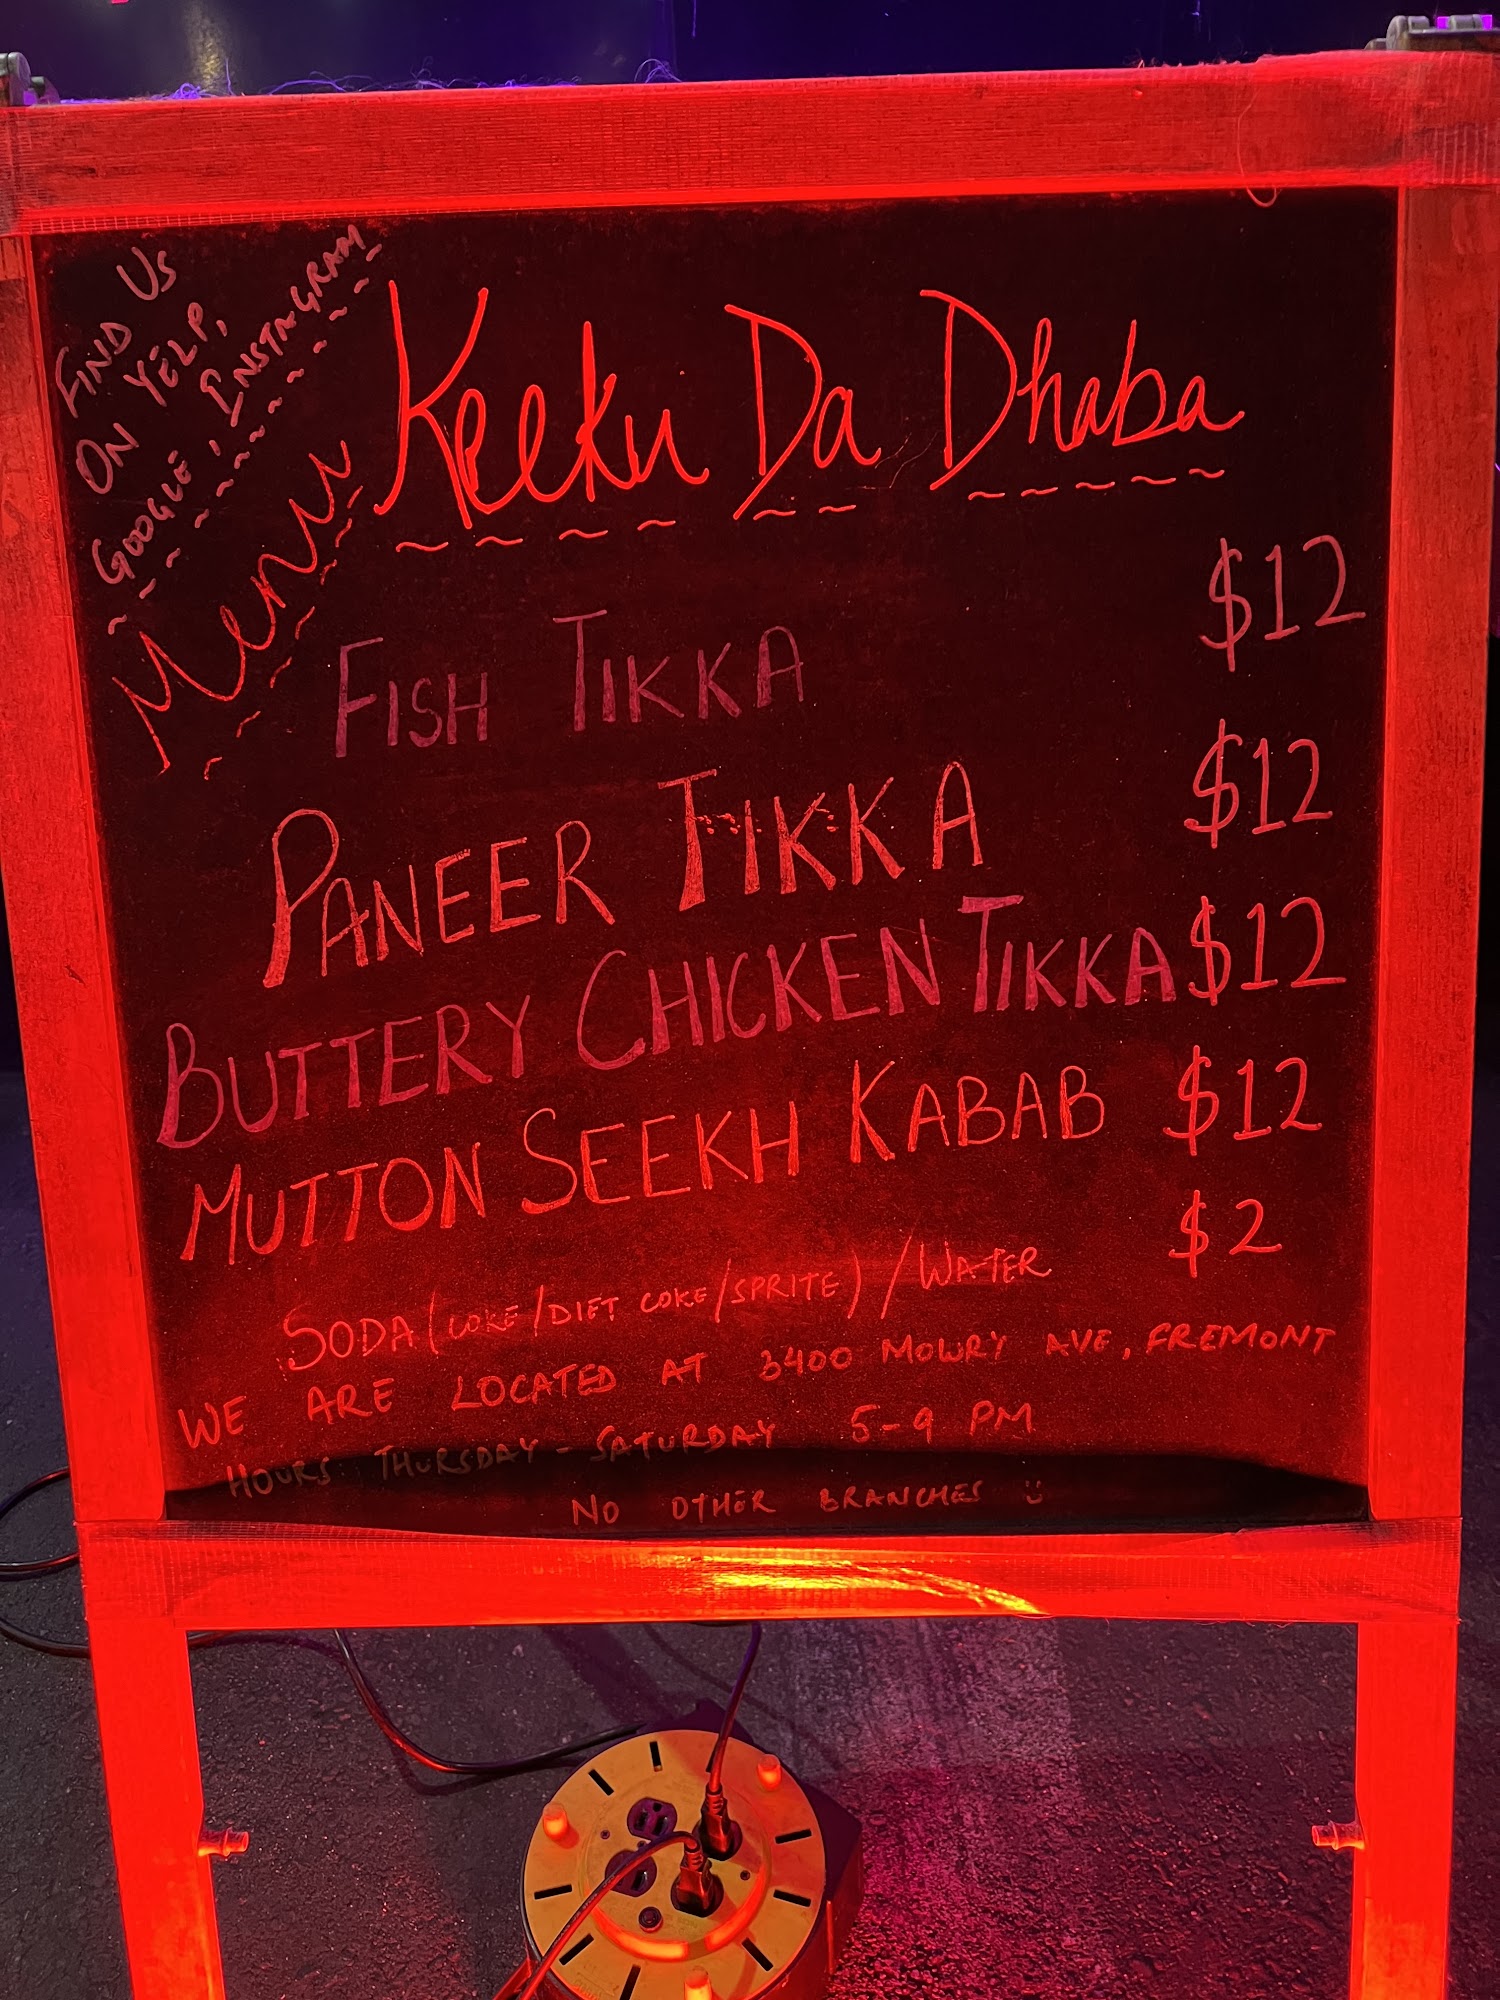 FIND US
ON YELP,
GOOGLE, INSTAGRAM
Menu
Keeku Da Dhaba
FISH TIKKA $12
PANEER TIKKA $12
BUTTERY CHICKEN TIKKA $12
MUTTON SEEKH KABAB $12
SODA (COKE/DIET COKE/SPRITE) / WATER $2
WE ARE LOCATED AT 3400 MOWRY AVE, FREMONT
HOURS: THURSDAY - SATURDAY 5-9 PM
NO OTHER BRANCHES